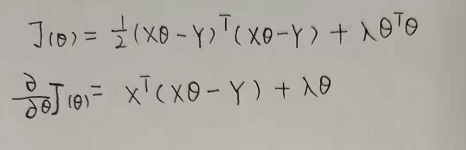 J(θ) = 1/2 (Xθ - Y)^T (Xθ - Y) + λθ^Tθ
∂/∂θ J(θ) = X^T (Xθ - Y) + λθ